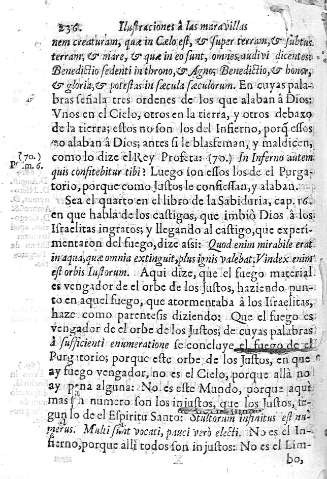 236. Ilustraciones à las maravillas
nem creaturam, quæ in Cælo est, & super terram, & subtus
terram, & mare, & quæ in eo sunt, omnes, audivi dicentes:
Benedictio sedenti in throno, & Agno; Benedictio, & honor,
& gloria, & potestas in sæcula sæculorum. En cuyas pala-
bras señala tres ordenes de los que alaban à Dios:
Vnos en el Cielo, otros en la tierra, y otros debaxo
de la tierra; estos no son los del Infierno, porq̃ essos
no alaban à Dios; antes si le blasfeman, y maldicen,
como lo dize el Rey Profeta: (70.) In Inferno autem
(70.)
quis confitebitur tibi? Luego son essos los de el Purga-
torio, porque como Justos le confiessan, y alaban.
Sea el quarto en el libro de la Sabiduria, cap. 16.
en que habla de los castigos, que imbiò Dios à los
Israelitas ingratos; y llegando al castigo, que experi-
mentaron del fuego, dize assi: Quod enim mirabile erat
in aqua, quæ omnia extinguit, plus ignis valebat; Vindex enim
est orbis Iustorum. Aqui dize, que el fuego material
es vengador de el orbe de los Justos, haziendo punto
en aquel fuego, que atormentaba à los Israelitas,
haze como parentesis diziendo: Que el fuego es
vengador de el orbe de los Justos; de cuyas palabras
à sufficienti enumeratione se concluye el fuego de el
Purgatorio; porque este orbe de los Justos, en que
ay fuego vengador, no es el Cielo, porque allà no
ay pena alguna: No es este Mundo, porque aqui
mas en numero son los injustos, que los Justos,
segun lo de el Espiritu Santo: Stultorum infinitus est nu-
merus. Multi sunt vocati, pauci verò electi. No es el In-
fierno, porque alli todos son injustos: No es el Lim-
bo,